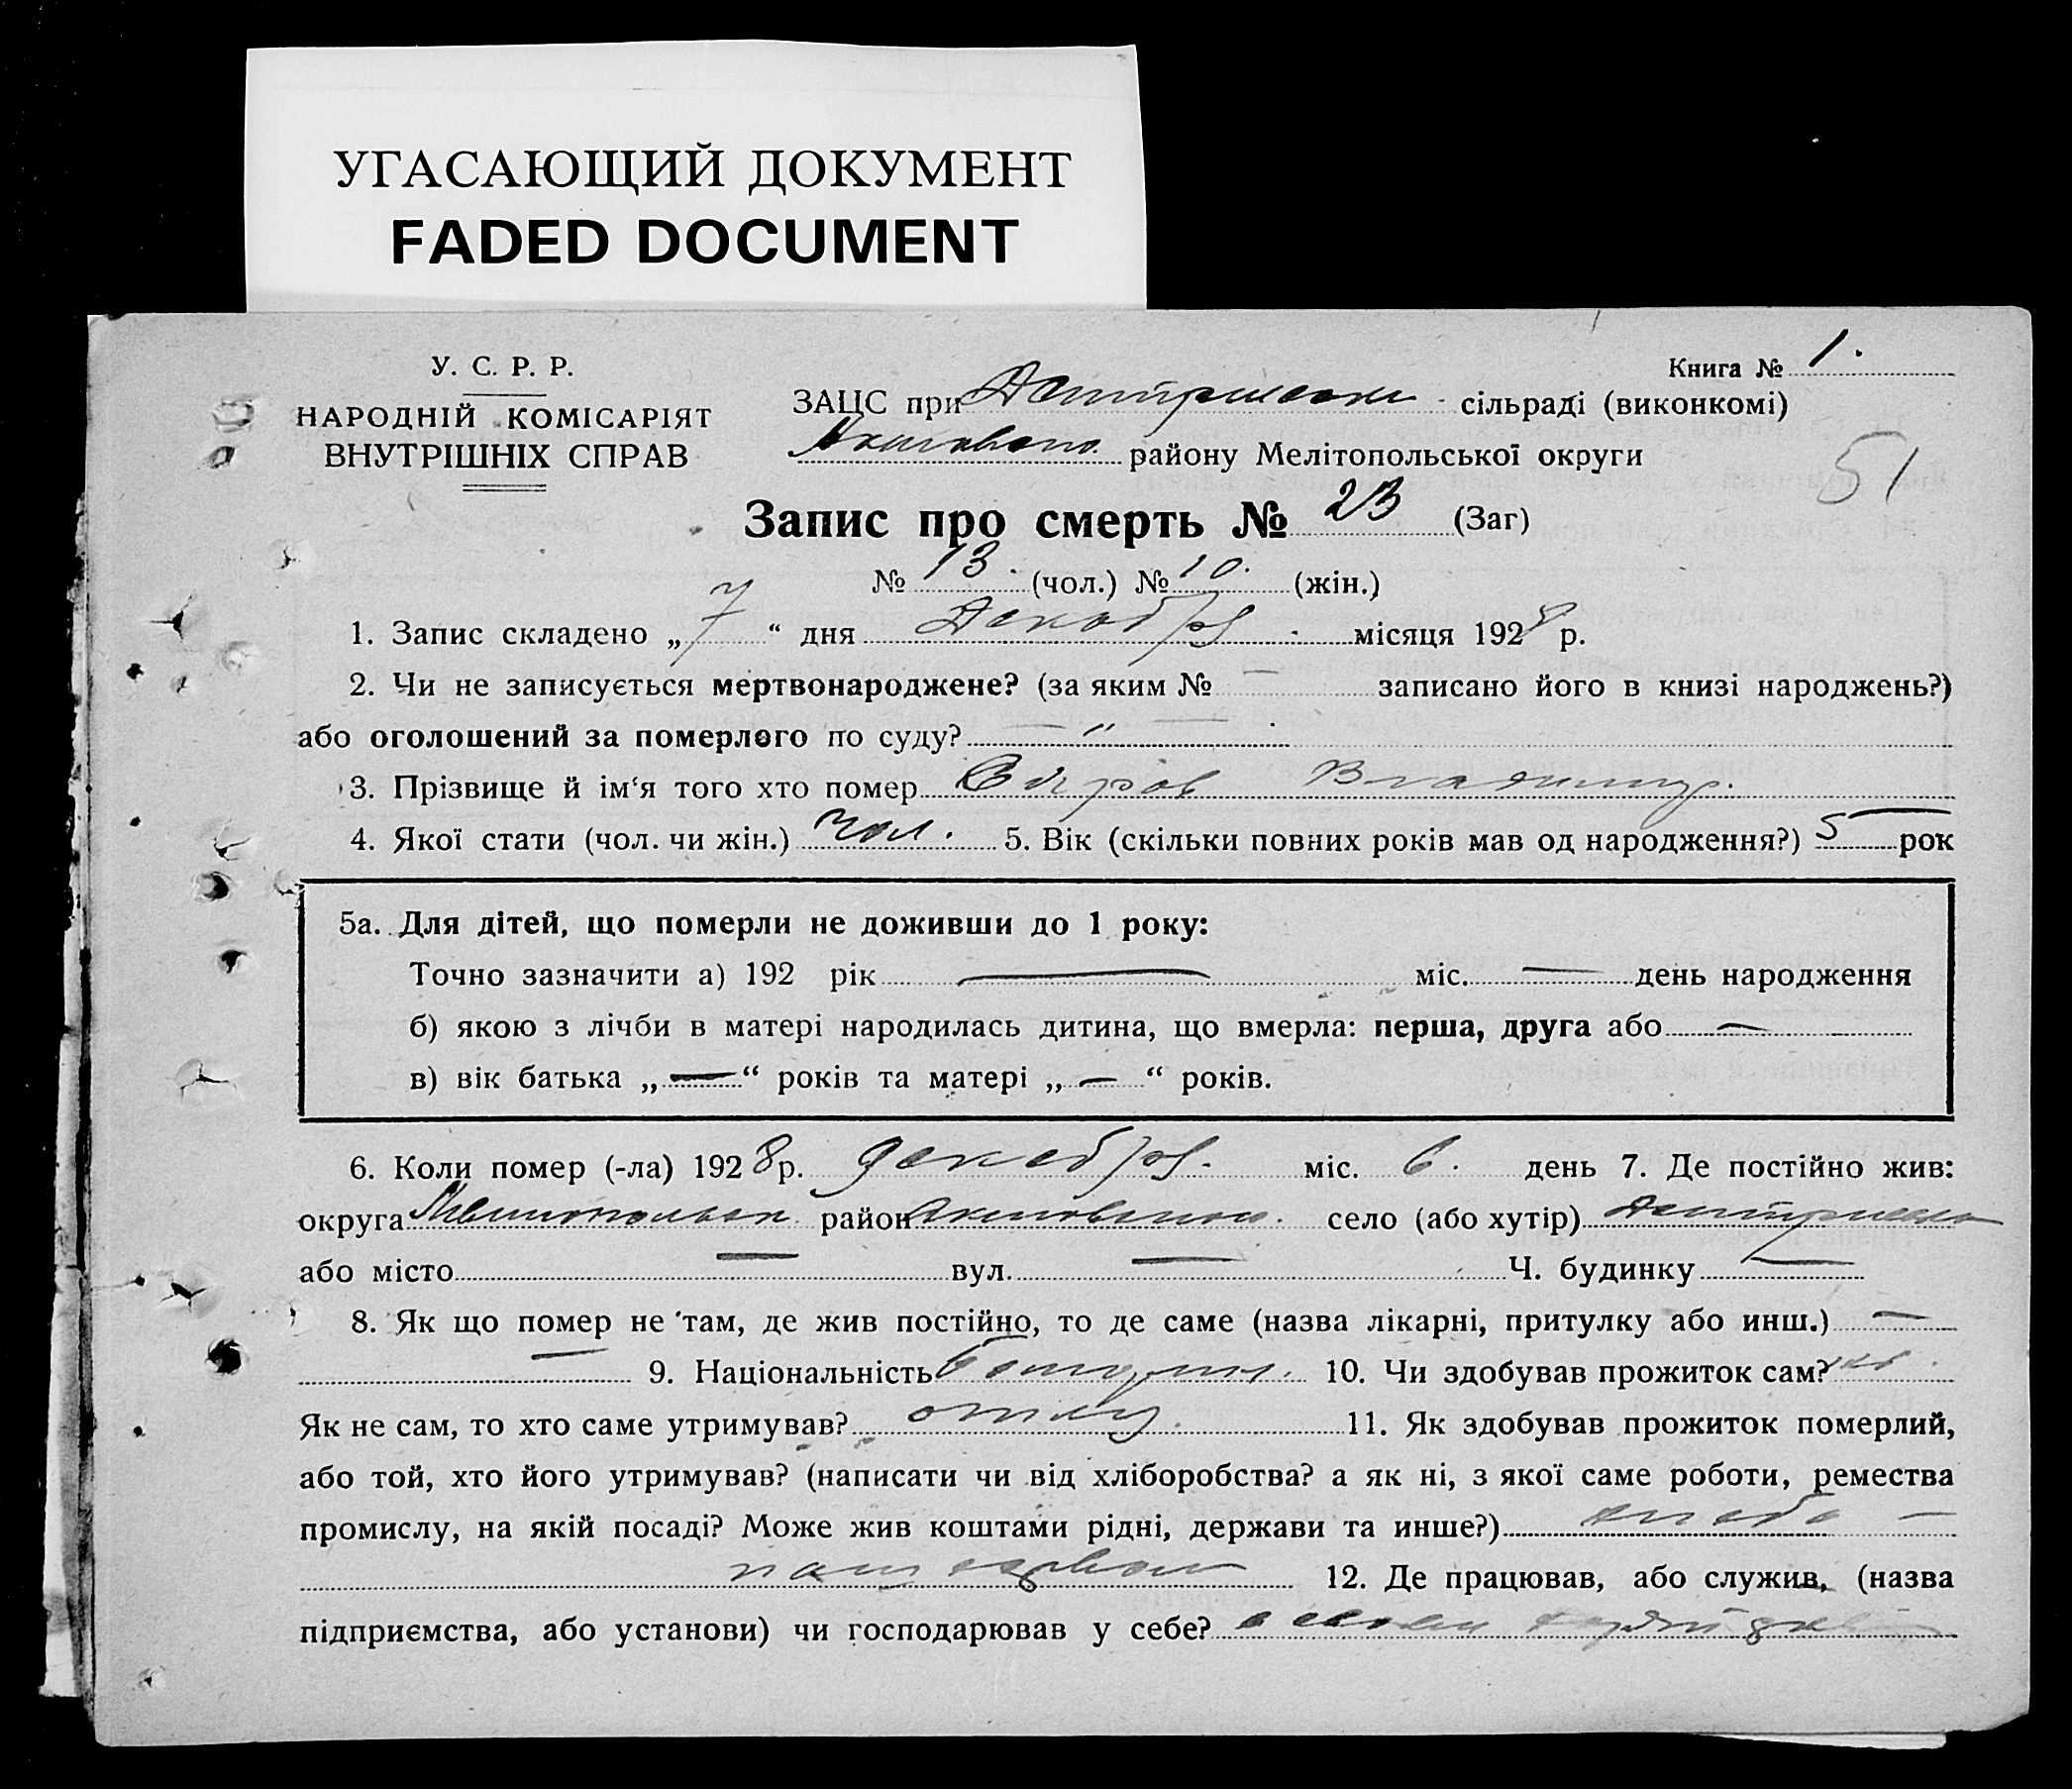 УГАСАЮЩИЙ ДОКУМЕНТ
FADED DOCUMENT
У. С. Р. Р.
НАРОДНІЙ КОМІСАРІЯТ
ВНУТРІШНІХ СПРАВ
Книга № 1.
ЗАЦС при сільраді (виконкомі)
району Мелітопольської округи
51
Запис про смерть № 23 (Заг)
№ 13. (чол.) № 10. (жін.)
1. Запис складено „ 7 “ дня Декабря місяця 1928 р.
2. Чи не записується мертвонароджене? (за яким № — записано його в книзі народжень?)
або оголошений за померлого по суду? — „ —
3. Прізвище й ім‘я того хто помер Владимир.
4. Якої стати (чол. чи жін.) чол. 5. Вік (скільки повних років мав од народження?) 5 рок
5а. Для дітей, що померли не доживши до 1 року:
Точно зазначити а) 192 рік — міс. — день народження
б) якою з лічби в матері народилась дитина, що вмерла: перша, друга або —
в) вік батька „ — “ років та матері „ — “ років.
6. Коли помер (-ла) 1928 р. декабря. міс. 6. день 7. Де постійно жив:
округа район село (або хутір)
або місто — вул. — Ч. будинку —
8. Як що помер не там, де жив постійно, то де саме (назва лікарні, притулку або инш.) —
— 9. Національність 10. Чи здобував прожиток сам?
Як не сам, то хто саме утримував? отец. 11. Як здобував прожиток померлий,
або той, хто його утримував? (написати чи від хліборобства? а як ні, з якої саме роботи, ремества
промислу, на якій посаді? Може жив коштами рідні, держави та инше?) хлебо —
12. Де працював, або служив, (назва
підприємства, або установи) чи господарював у себе? в своем